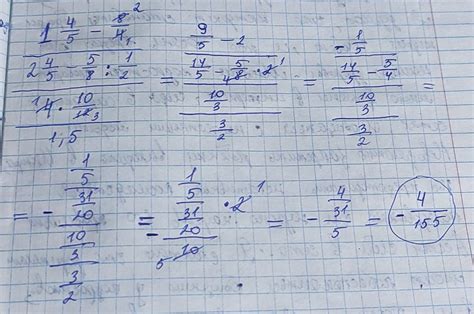 (1 4/5 - 8/4 2) / (2 4/5 - 5/8 : 1/2) / (1 4 · 10/12 3) / 1,5 = (9/5 - 2) / (14/5 - 5/4 8 · 2 1) / (10/3) / (3/2) = (-1/5) / (14/5 - 5/4) / (10/3) / (3/2) =
= - (1/5) / (31/20) / (10/3) / (3/2) = - (1/5) / (31/20) / 5 10 · 2 1 = - (4/31) / 5 = - 4/155